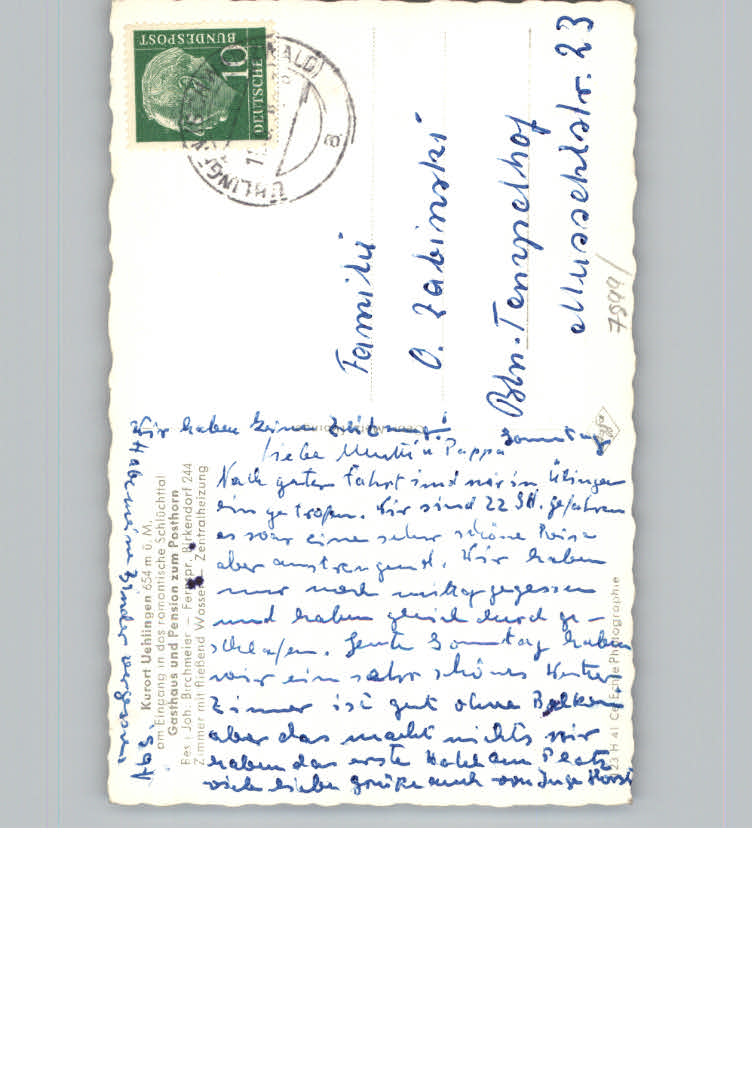 DEUTSCHE
BUNDESPOST
10
ÜHLINGEN
WALD)
a
Familie
O. Zabinski
Bln.-Tempelhof
Mussehlstr. 23
7899/
Kurort Uehlingen 654 m ü. M.
am Eingang in das romantische Schlüchttal
Gasthaus und Pension zum Posthorn
Bes.: Joh. Birchmeier – Fernspr. Birkendorf 244
Zimmer mit fließend Wasser – Zentralheizung
Wir haben keine Zeitung!
Sonntag
Liebe Mutti u Pappa
Nach guter Fahrt sind wir in Ülingen
ein getrofen. Wir sind 22 St. gefahren
es war eine sehr schöne Reise
aber anstrengend. Wir haben
nur noch mittaggegessen
und haben gleich durch ge-
schlafen. Heute Sonntag haben
wir ein sehr schönes Wetter
Zimmer ist gut ohne Balkon,
aber das macht nichts wir
haben das erste Hotel am Platz
viele liebe Grüße auch von Inge Horst
Habe meine Binder vergessen
Echte Photographie